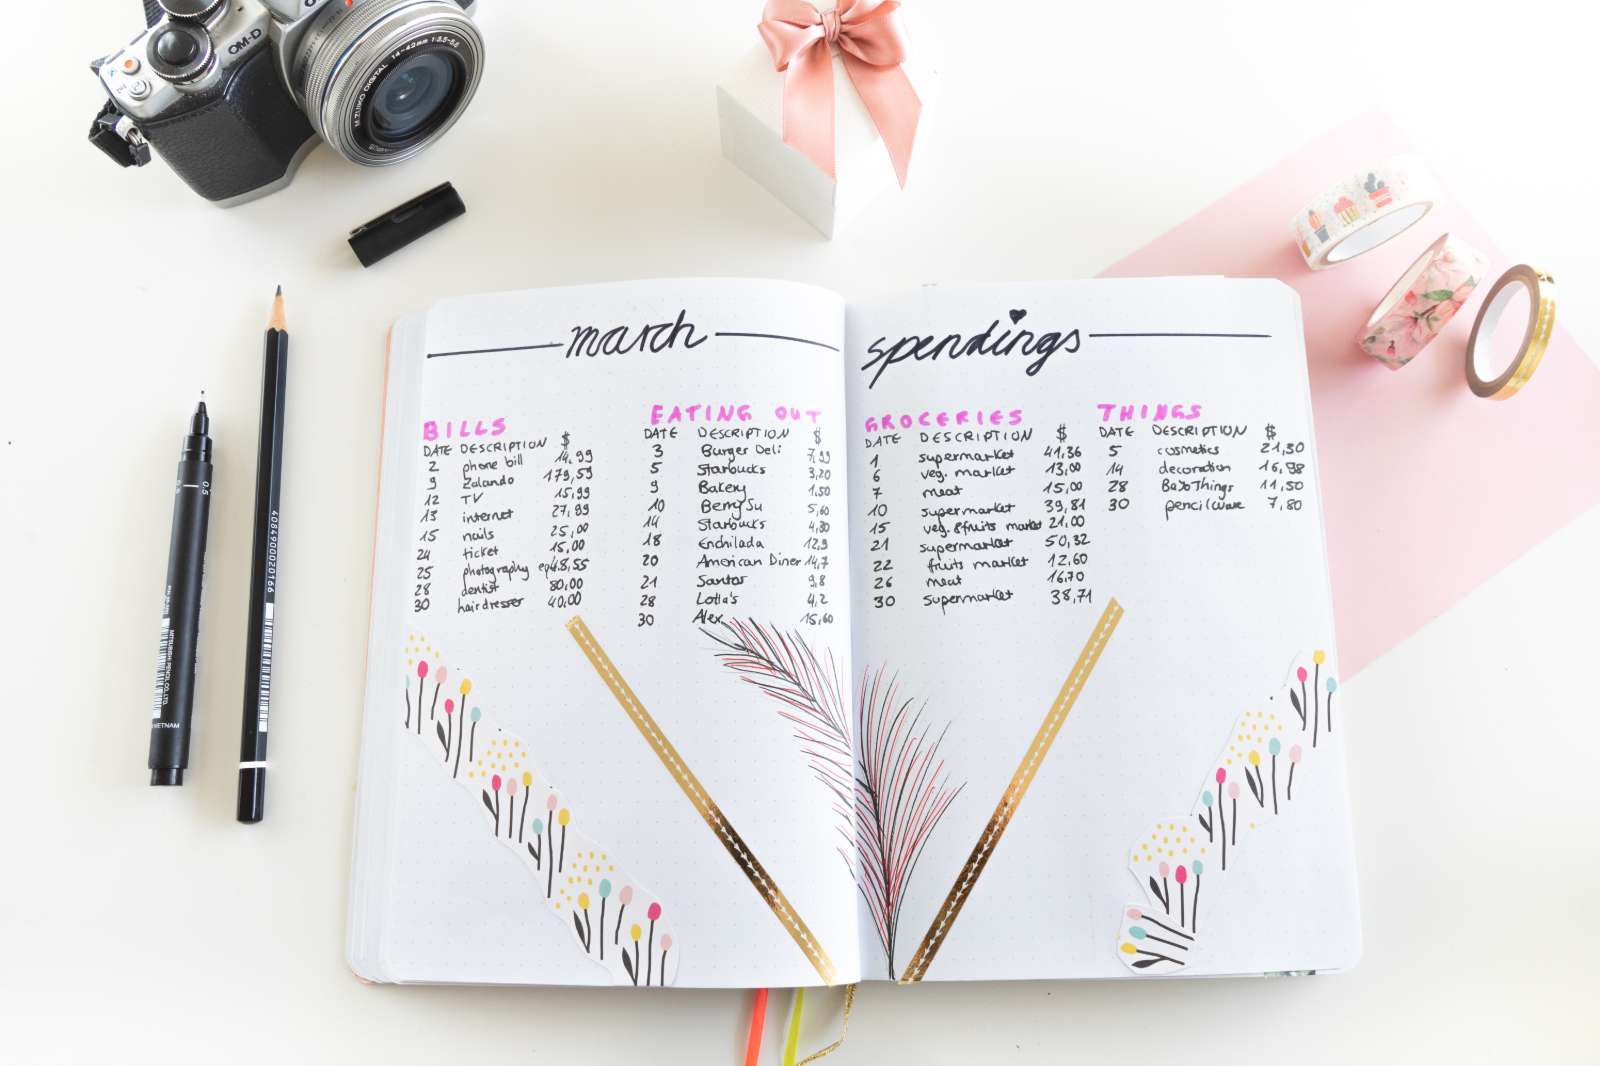 OM-D
M.ZUIKO DIGITAL 14-42mm 1:3.5-5.6
march
spendings
BILLS
DATE DESCRIPTION $
2 phone bill 14,99
9 Zalando 179,59
12 TV 15,99
13 internet 27,99
15 nails 25,00
24 ticket 15,00
25 photography 48,55
28 dentist 80,00
30 hairdresser 40,00
EATING OUT
DATE DESCRIPTION $
3 Burger Deli 7,99
5 Starbucks 3,20
9 Bakery 1.50
10 BerrySu 5,60
14 Starbucks 4,30
18 Enchilada 12,9
20 American Diner 14,7
21 Santos 9,8
28 Lotta's 4,2
30 Alex 15,60
GROCERIES
DATE DESCRIPTION $
1 supermarket 41,36
6 veg. market 13,00
7 meat 15,00
10 supermarket 39,81
15 veg.&fruits market 21,00
21 supermarket 50,32
22 fruits market 12,60
26 meat 16,70
30 supermarket 38,71
THINGS
DATE DESCRIPTION $
5 cosmetics 21,50
14 decoration 16,98
28 BaJoThings 11,50
30 pencilcase 7,80
0.5
MITSUBISHI PENCIL CO.,LTD.
VIETNAM
4084900020166